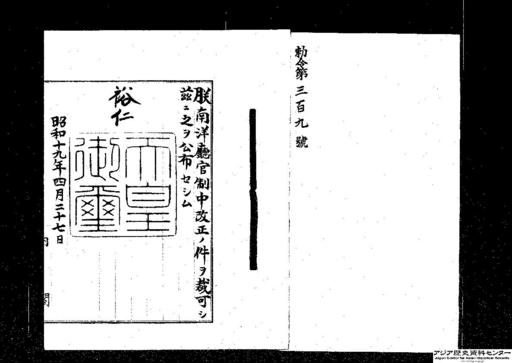 勅令第三百九號
朕南洋廳官制中改正ノ件ヲ裁可シ
茲ニ之ヲ公布セシム
裕仁
天皇
御璽
昭和十九年四月二十七日
内閣
アジア歴史資料センター
Japan Center for Asian Historical Records